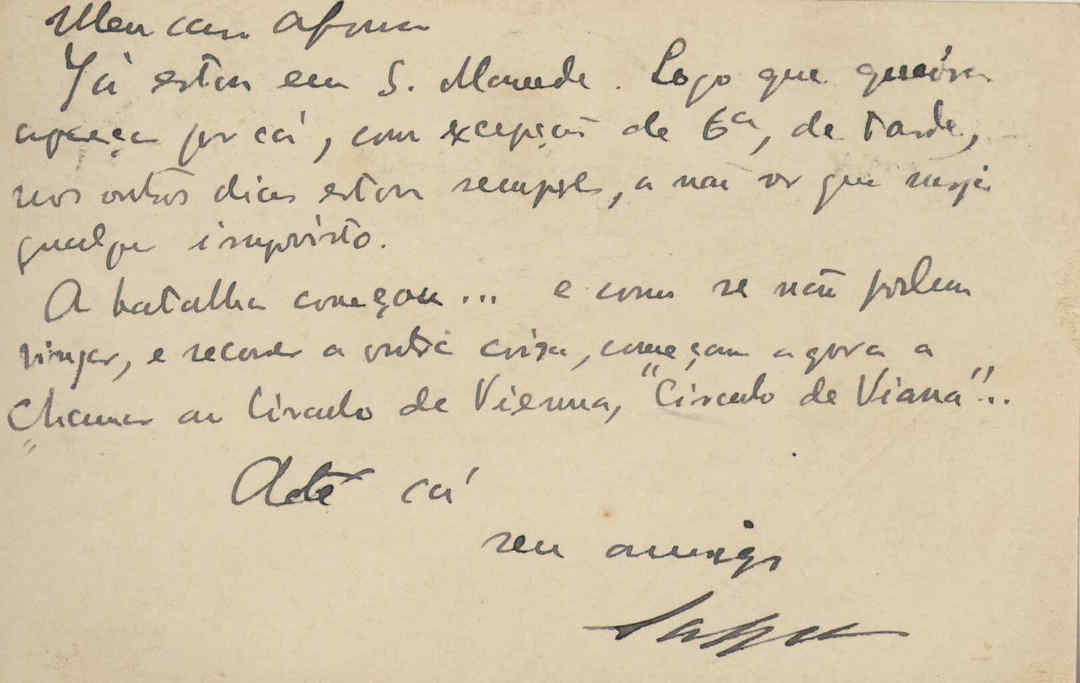 Meu caro Afonso
Já estou em S. Mamede. Logo que queira
apareça por cá, com excepção de 6ª, de tarde,
nos outros dias estou sempre, a não ser que surja
qualquer imprevisto.
A batalha começou... e como se não podem
vingar, e recorrer a outra coisa, começam agora a
chamar ao Circulo de Vienna, "Circulo de Viana"...
Até cá
seu amigo